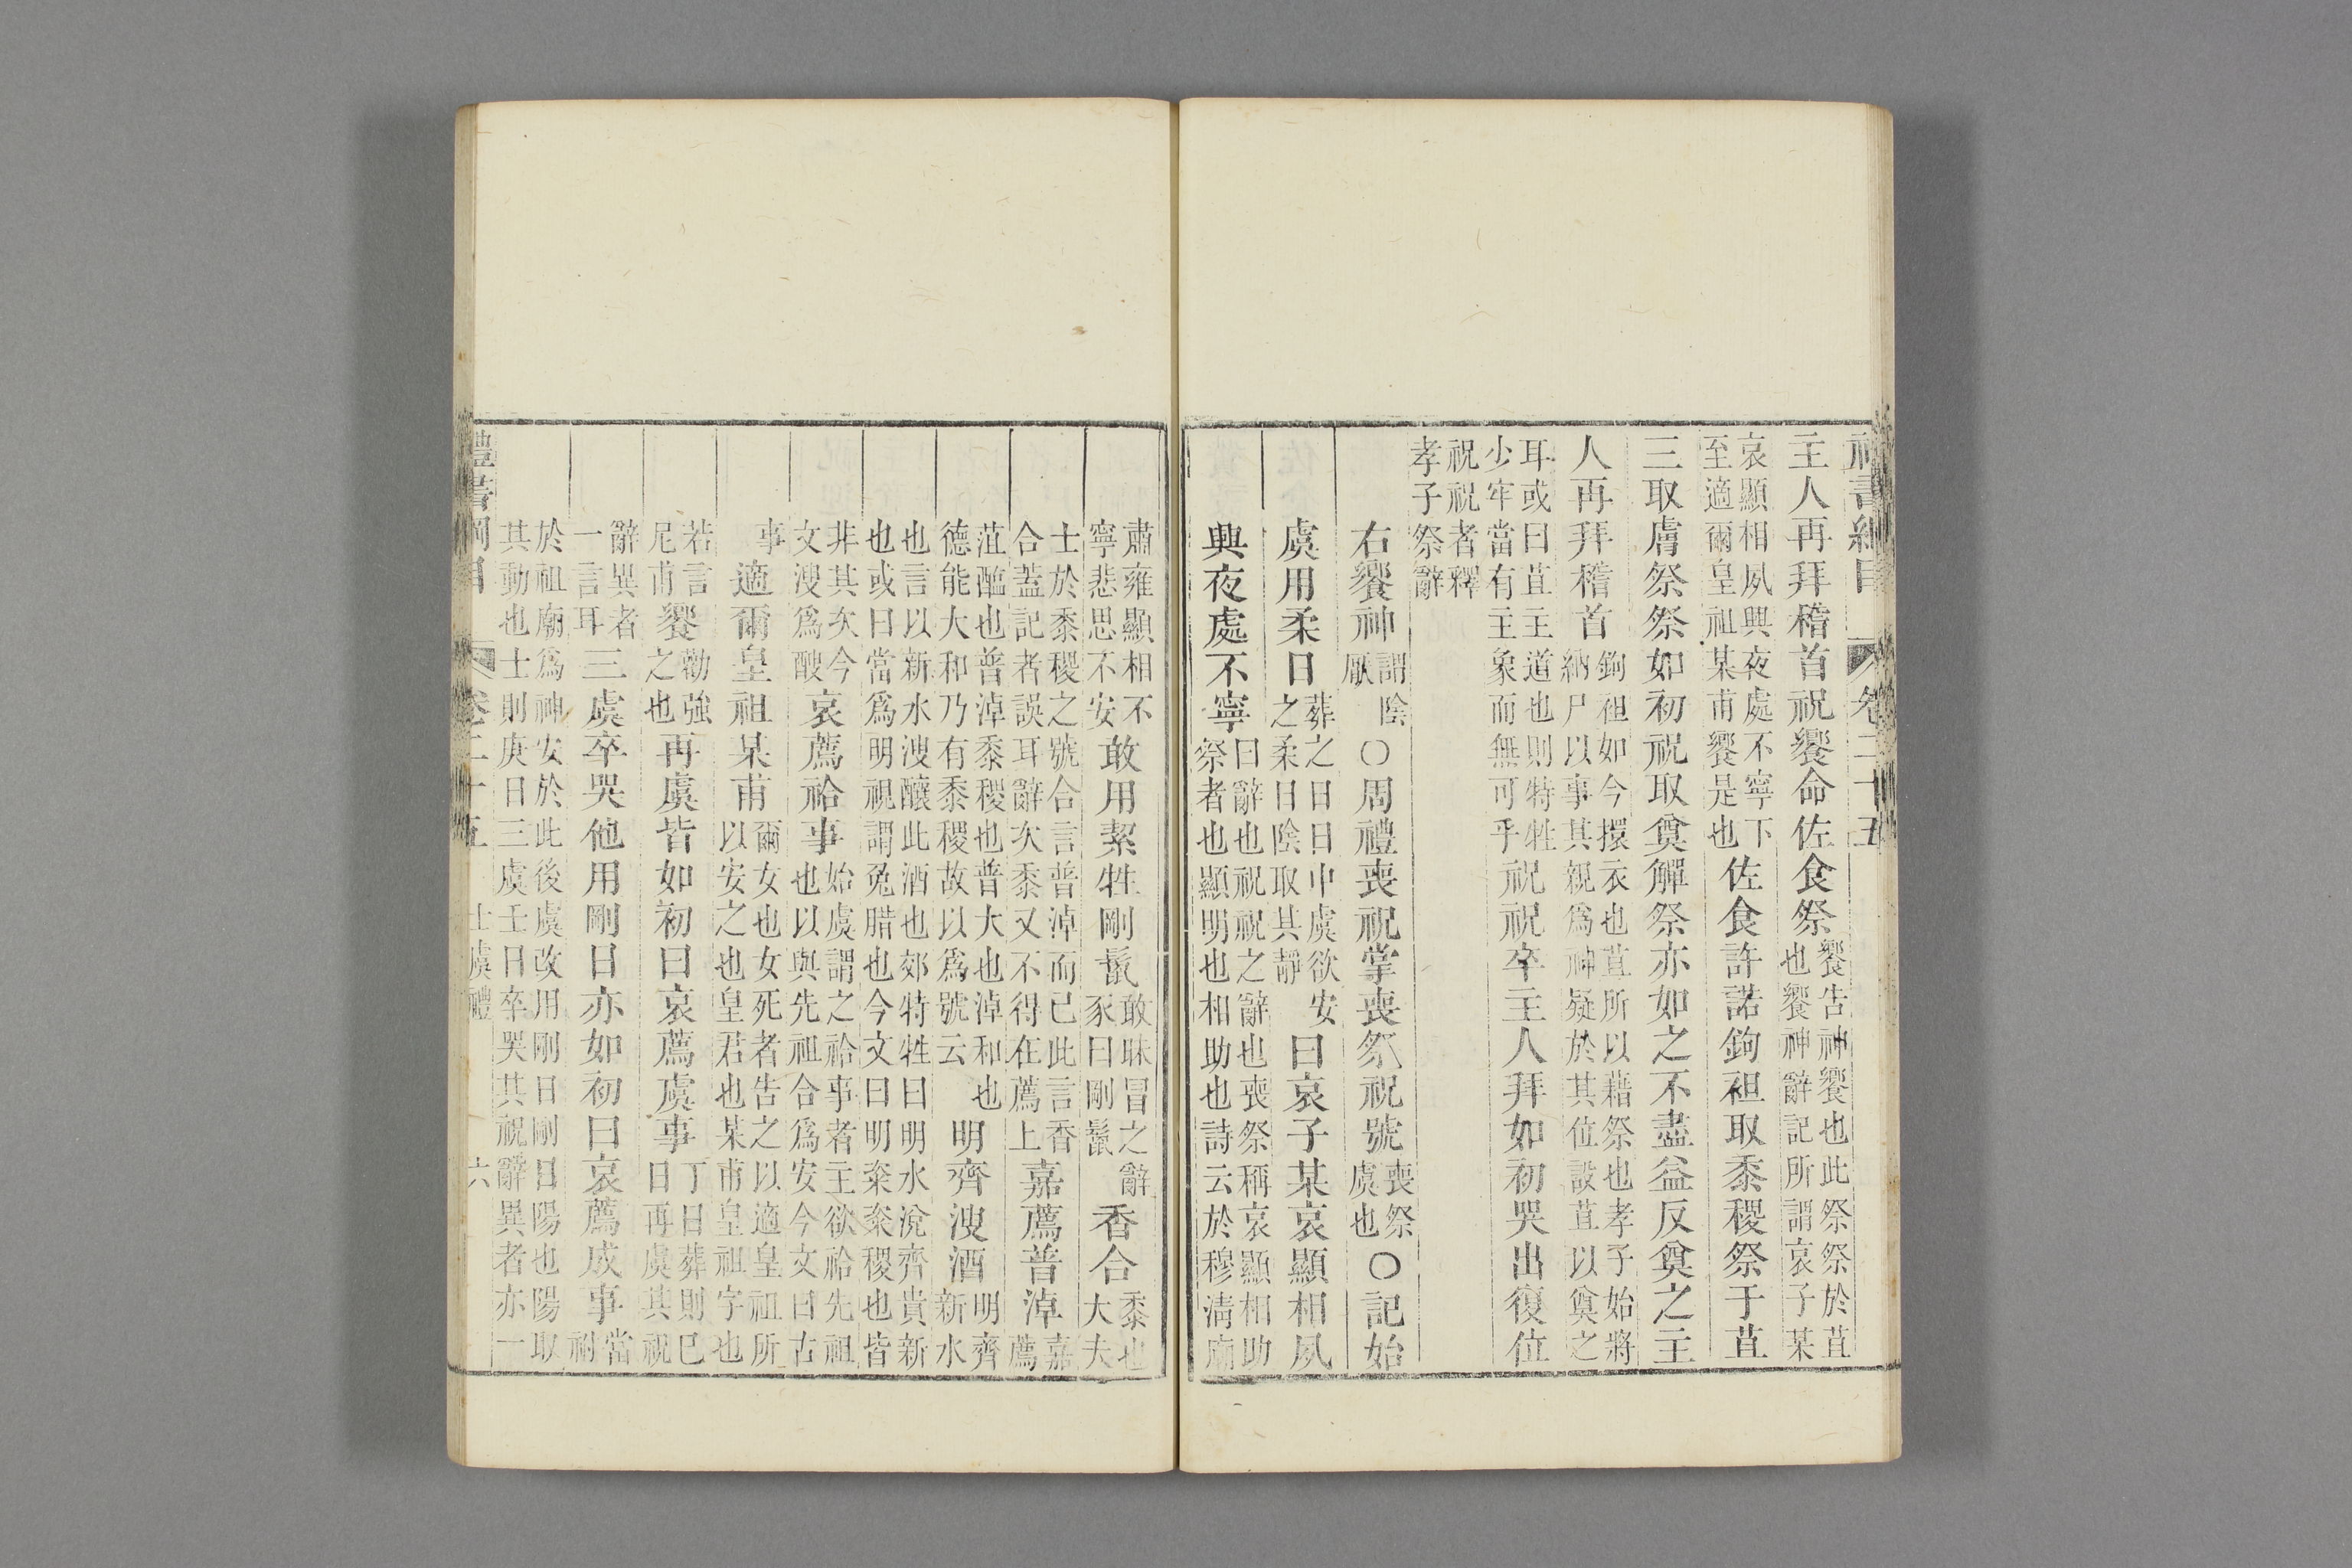 禮書綱目 卷二十五
主人再拜稽首祝饗命佐食祭饗告神饗也此祭祭於苴也饗神辭記所謂哀子某
哀顯相夙興夜處不寧下至適爾皇祖某甫饗是也佐食許諾鉤袒取黍稷祭于苴
三取膚祭祭如初祝取奠觶祭亦如之不盡益反奠之主
人再拜稽首鉤袒如今擐衣也苴所以藉祭也孝子始將納尸以事其親爲神疑於其位設苴以奠之
耳或曰苴主道也則特牲少牢當有主象而無可乎祝祝卒主人拜如初哭出復位
祝祝者釋孝子祭辭
右饗神謂陰厭○周禮喪祝掌喪祭祝號喪祭虞也○記始
虞用柔日葬之日日中虞欲安之柔日陰取其靜曰哀子某哀顯相夙
興夜處不寧曰辭也祝祝之辭也喪祭稱哀顯相助祭者也顯明也相助也詩云於穆淸廟
肅雍顯相不寧悲思不安敢用絜牲剛鬛敢昧冒之辭豕曰剛鬛香合黍也大夫
士於黍稷之號合言普淖而已此言香合蓋記者誤耳辭次黍又不得在薦上嘉薦普淖嘉薦
菹醢也普淖黍稷也普大也淖和也德能大和乃有黍稷故以爲號云明齊溲酒明齊新水
也言以新水溲釀此酒也郊特牲曰明水涗齊貴新也或曰當爲明視謂兔腊也今文曰明粢粢稷也皆
非其次今文溲爲醙哀薦祫事始虞謂之祫事者主欲祫先祖也以與先祖合爲安今文曰古
事適爾皇祖某甫爾女也女死者告之以適皇祖所以安之也皇君也某甫皇祖字也
若言尼甫饗勸強之也再虞皆如初曰哀薦虞事丁日葬則己日再虞其祝
辭異者一言耳三虞卒哭他用剛日亦如初曰哀薦成事當祔
於祖廟爲神安於此後虞改用剛日剛日陽也陽取其動也士則庚日三虞壬日卒哭其祝辭異者亦一
禮書綱目 卷二十五 士虞禮 六